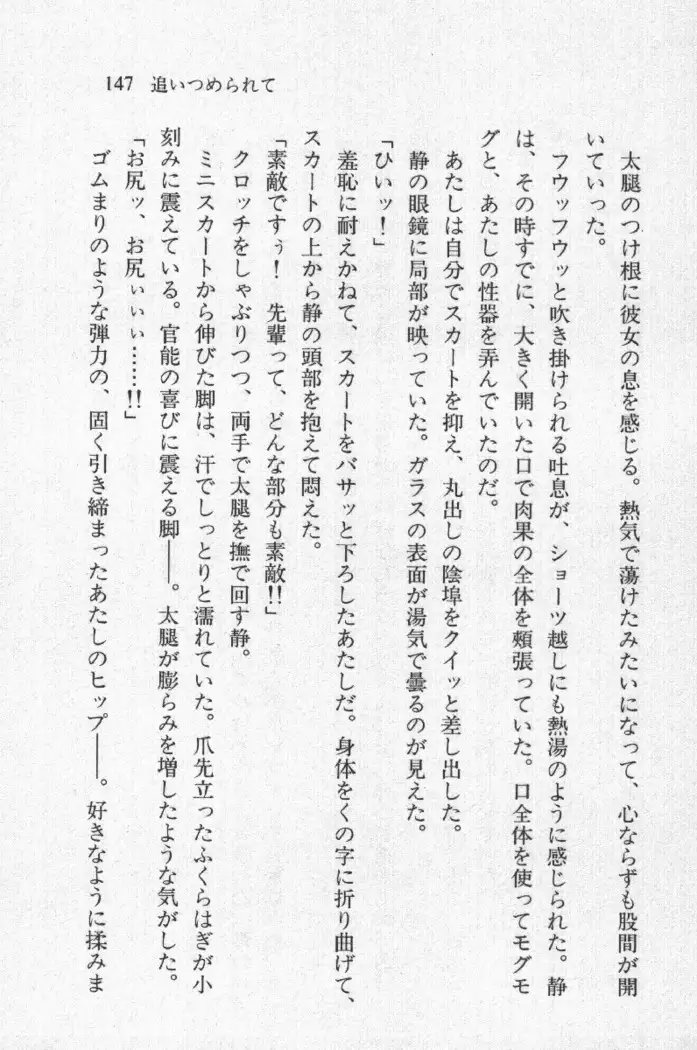 147 追いつめられて
太腿のつけ根に彼女の息を感じる。熱気で蕩けたみたいになって、心ならずも股間が開
いていった。
フウッフウッと吹き掛けられる吐息が、ショーツ越しにも熱湯のように感じられた。静
は、その時すでに、大きく開いた口で肉果の全体を頬張っていた。口全体を使ってモグモ
グと、あたしの性器を弄んでいたのだ。
あたしは自分でスカートを抑え、丸出しの陰埠をクイッと差し出した。
静の眼鏡に局部が映っていた。ガラスの表面が湯気で曇るのが見えた。
「ひいッ！」
羞恥に耐えかねて、スカートをバサッと下ろしたあたしだ。身体をくの字に折り曲げて、
スカートの上から静の頭部を抱えて悶えた。
「素敵ですぅ！　先輩って、どんな部分も素敵!!」
クロッチをしゃぶりつつ、両手で太腿を撫で回す静。
ミニスカートから伸びた脚は、汗でしっとりと濡れていた。爪先立ったふくらはぎが小
刻みに震えている。官能の喜びに震える脚――。太腿が膨らみを増したような気がした。
「お尻ッ、お尻ぃぃぃ……!!」
ゴムまりのような弾力の、固く引き締まったあたしのヒップ――。好きなように揉みま